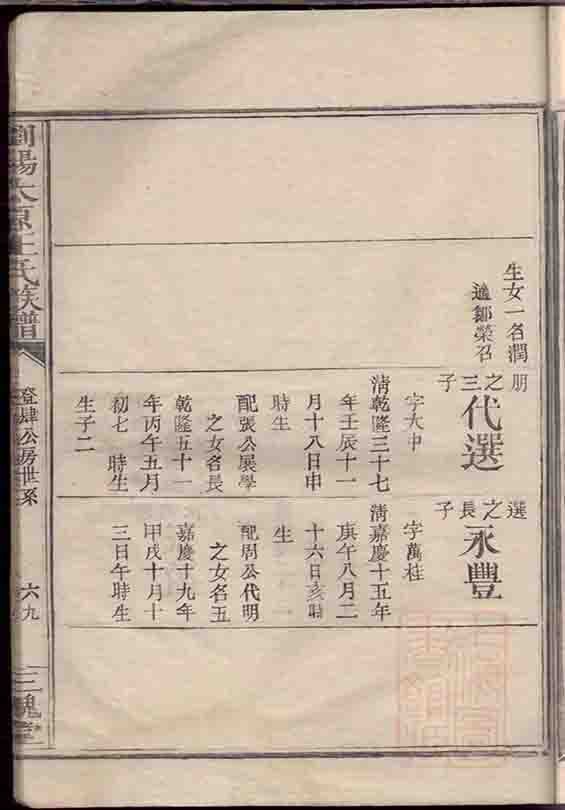 生女一名潤
適鄒榮召
朋之三子
代選
字大中
清乾隆三十七
年壬辰十一
月十八日申
時生
配張公展學
之女名長
乾隆五十一
年丙午五月
初七 時生
生子二
選之長子
永豐
字萬桂
清嘉慶十五年
庚午八月二
十六日亥時
生
配周公代明
之女名五
嘉慶十九年
甲戌十月十
三日午時生
瀏陽太原王氏族譜
登肆公房世系
六九
三槐堂